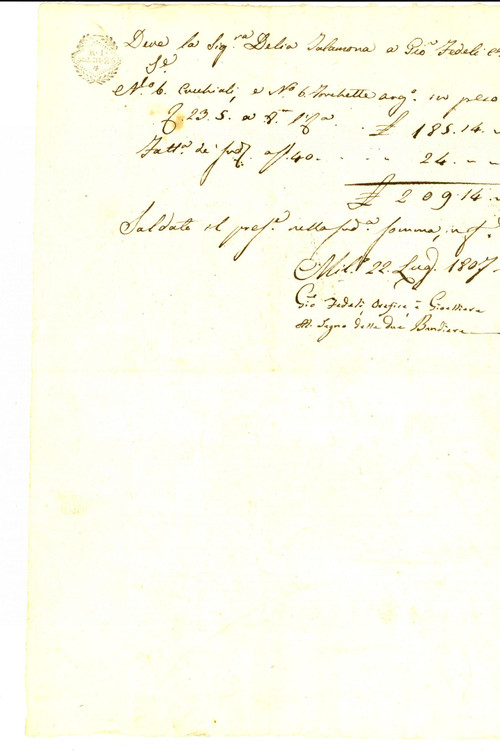 Deve la Sig.ra Delia Talamona a Gio. Fedeli
N.o 6. Cucchiali, e N.o 6. Forchette arg.o in peso
23. 5. a £ 185. 14. ~
Fatt.a de' sud. a £ 40. . . . . 24. ~ ~
£ 209. 14. ~
Saldato il pres.e nella sud.a somma, in f.
Mil.o 22. Lug. 1807.
Gio Fedeli, Orefice, e Gioielliere
Al Segno delle due Bandiere